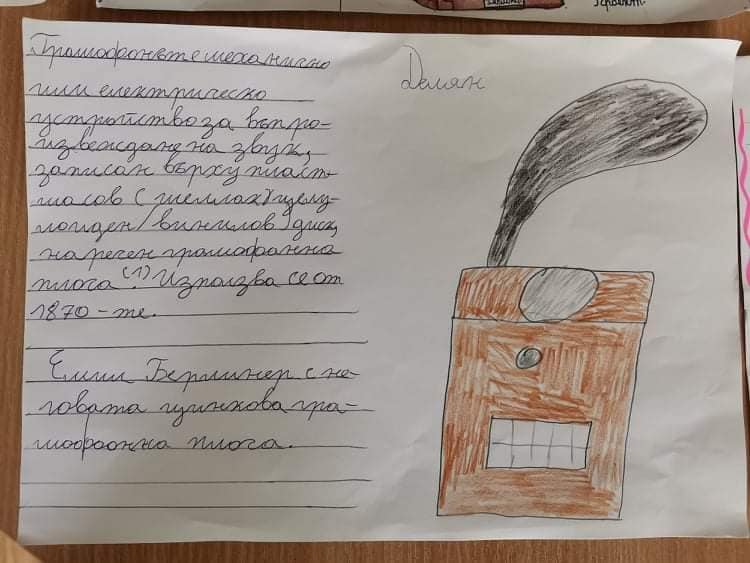 Грамофонът е механично
или електрическо
устройство за възпро-
извеждане на звук,
записан върху пласт-
масов (шеллак/целу-
лоиден/винилов) диск,
наречен грамофонна
плоча (1). Използва се от
1870-те.
Емил Берлинер с не-
говата цинкова гра-
мофонна плоча.
Делян